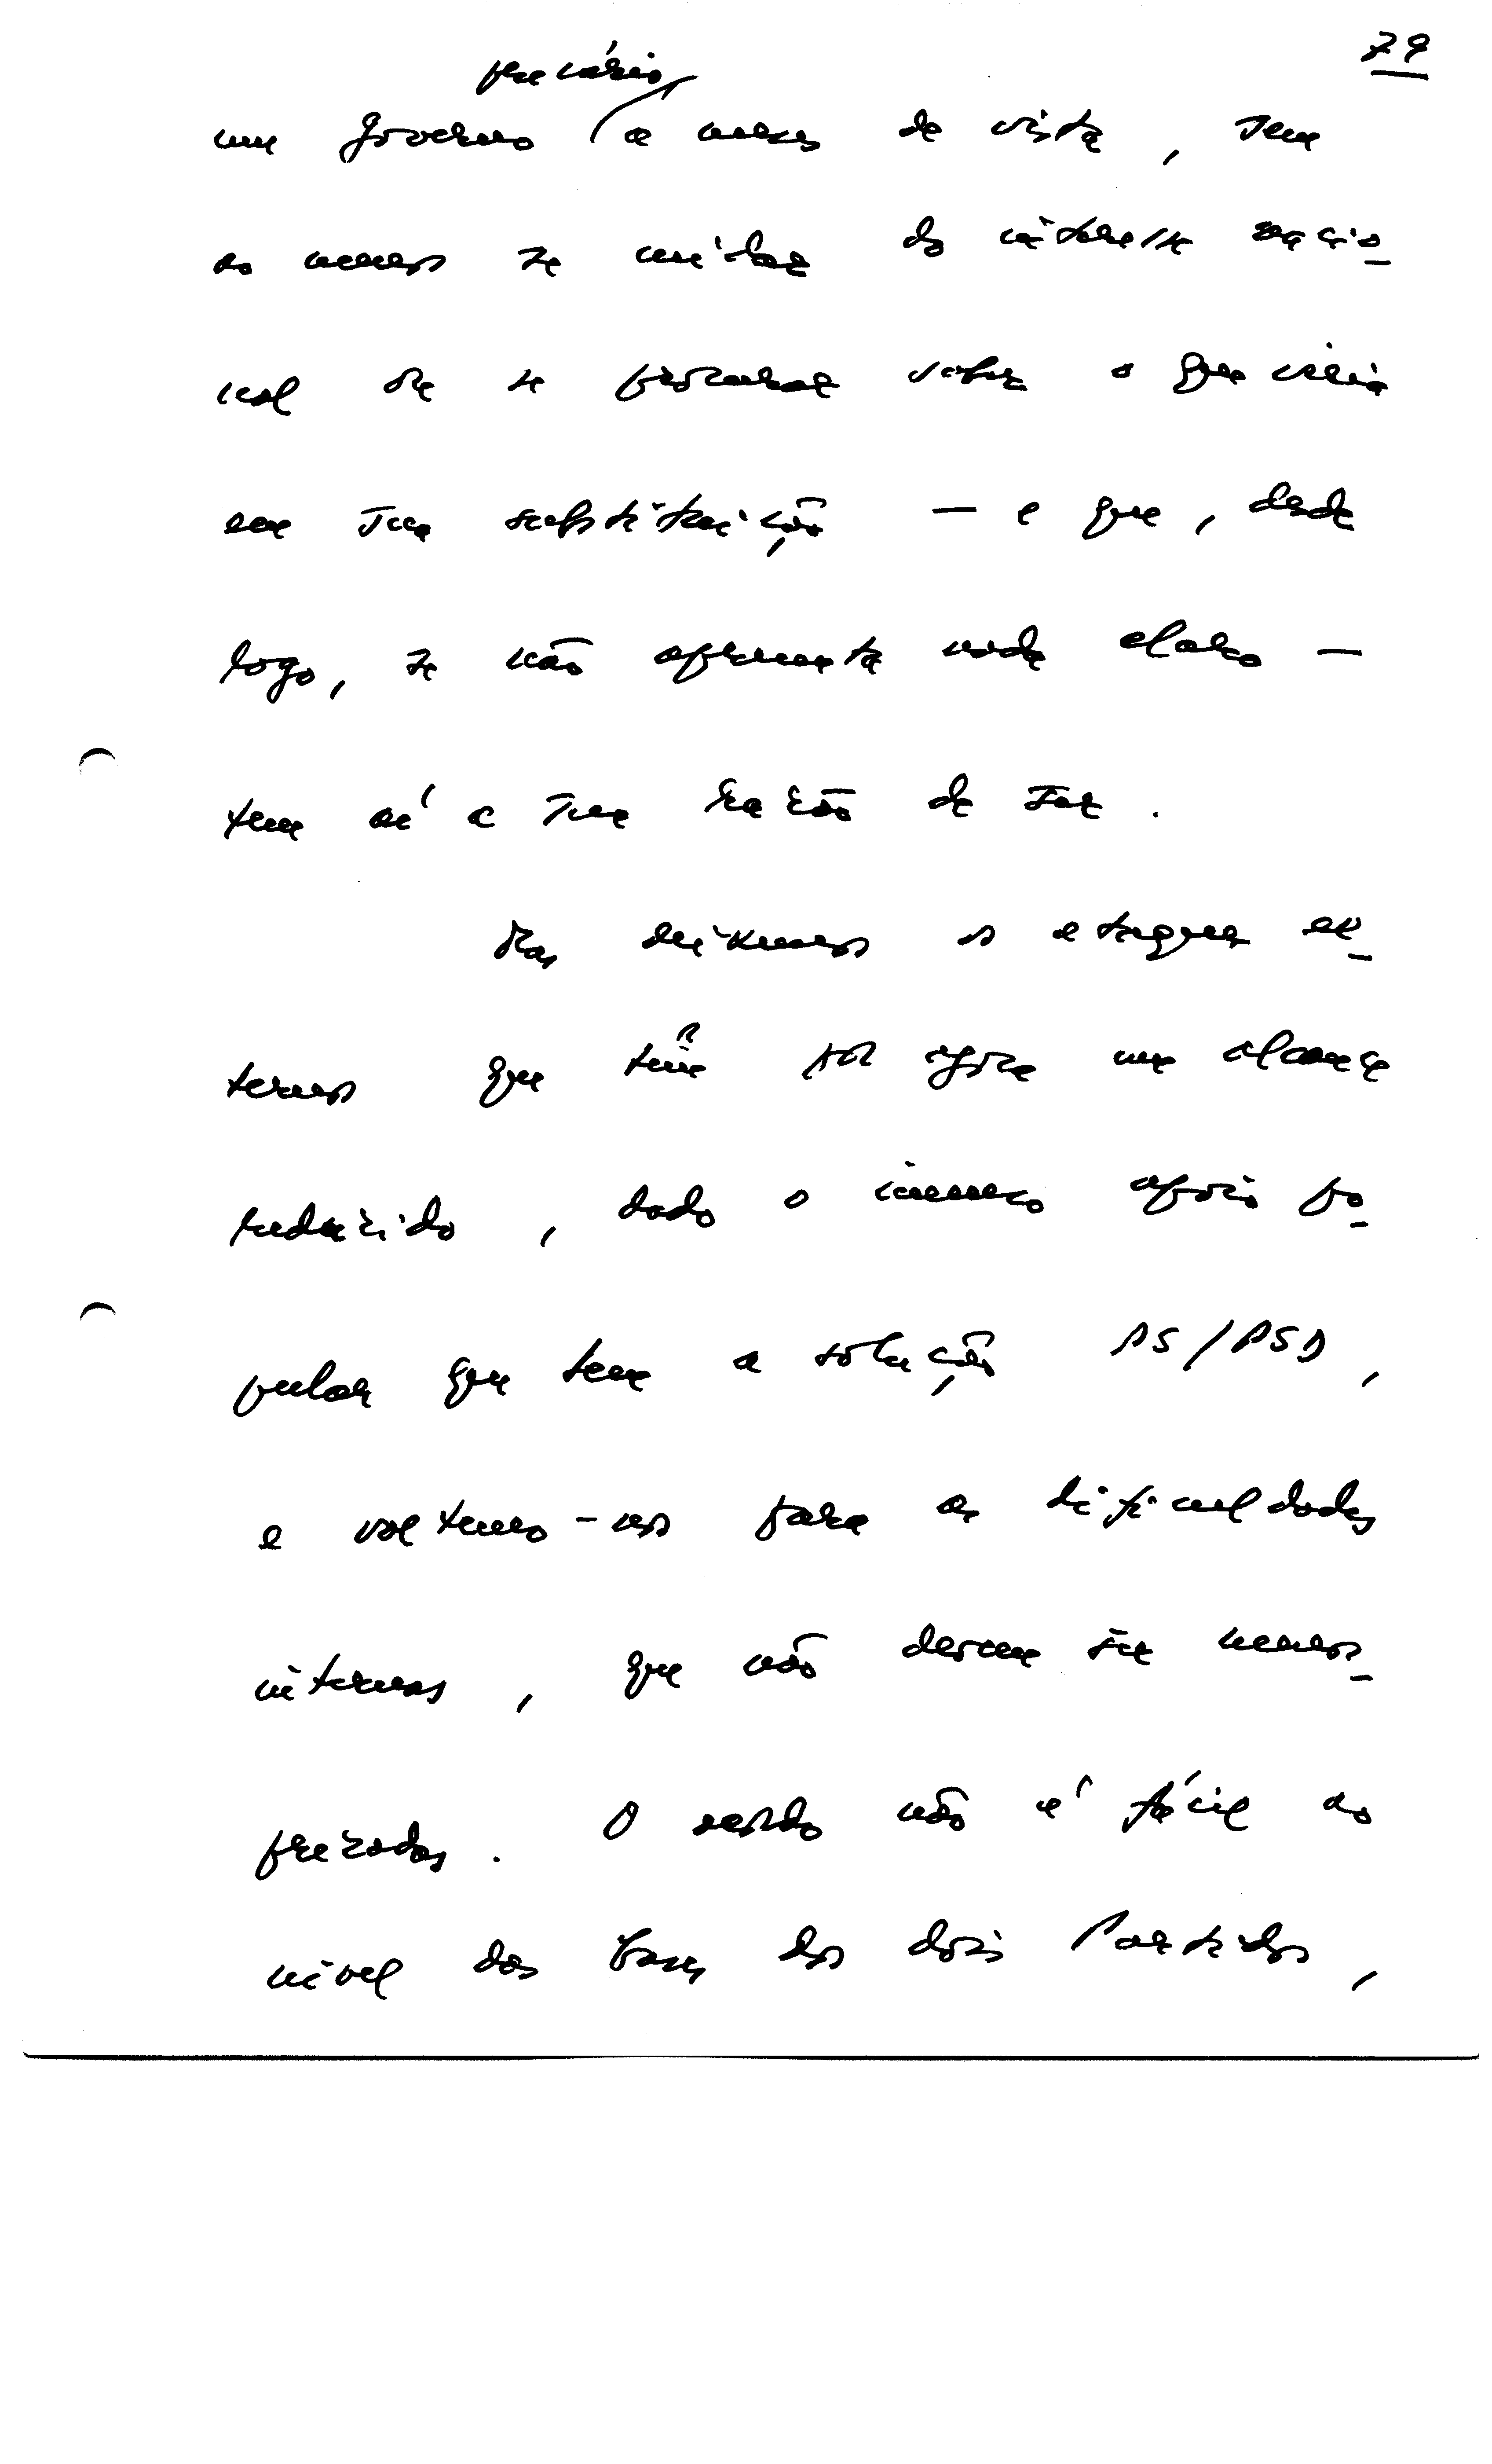 79
precário,
um governo a meses de vista, sem
ao menos se cuidar do interesse nacio-
nal ou se procurar saber o que viria
em sua substituição — e que, desde
logo, se não apresenta nada claro —
tem aí a sua razão de ser.
Mas deixemos os ataques ex-
ternos que têm por agora um alcance
reduzido, dado o imenso apoio po-
pular que tem a solução PS/PSD,
e voltemo-nos para as dificuldades
internas, que não devem ser menos-
prezadas. O acordo não é fácil ao
nível das bases dos dois Partidos,